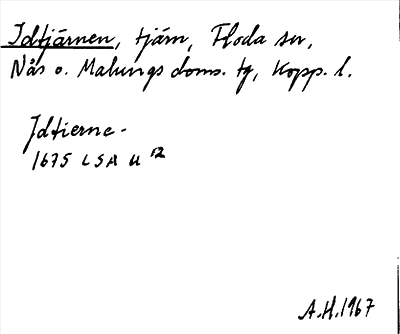 Idtjärnen, tjärn, Floda sn,
Nås o. Malungs doms. tg, Kopp. l.
Idtierne-
1675 LSA U 12
A.H. 1967